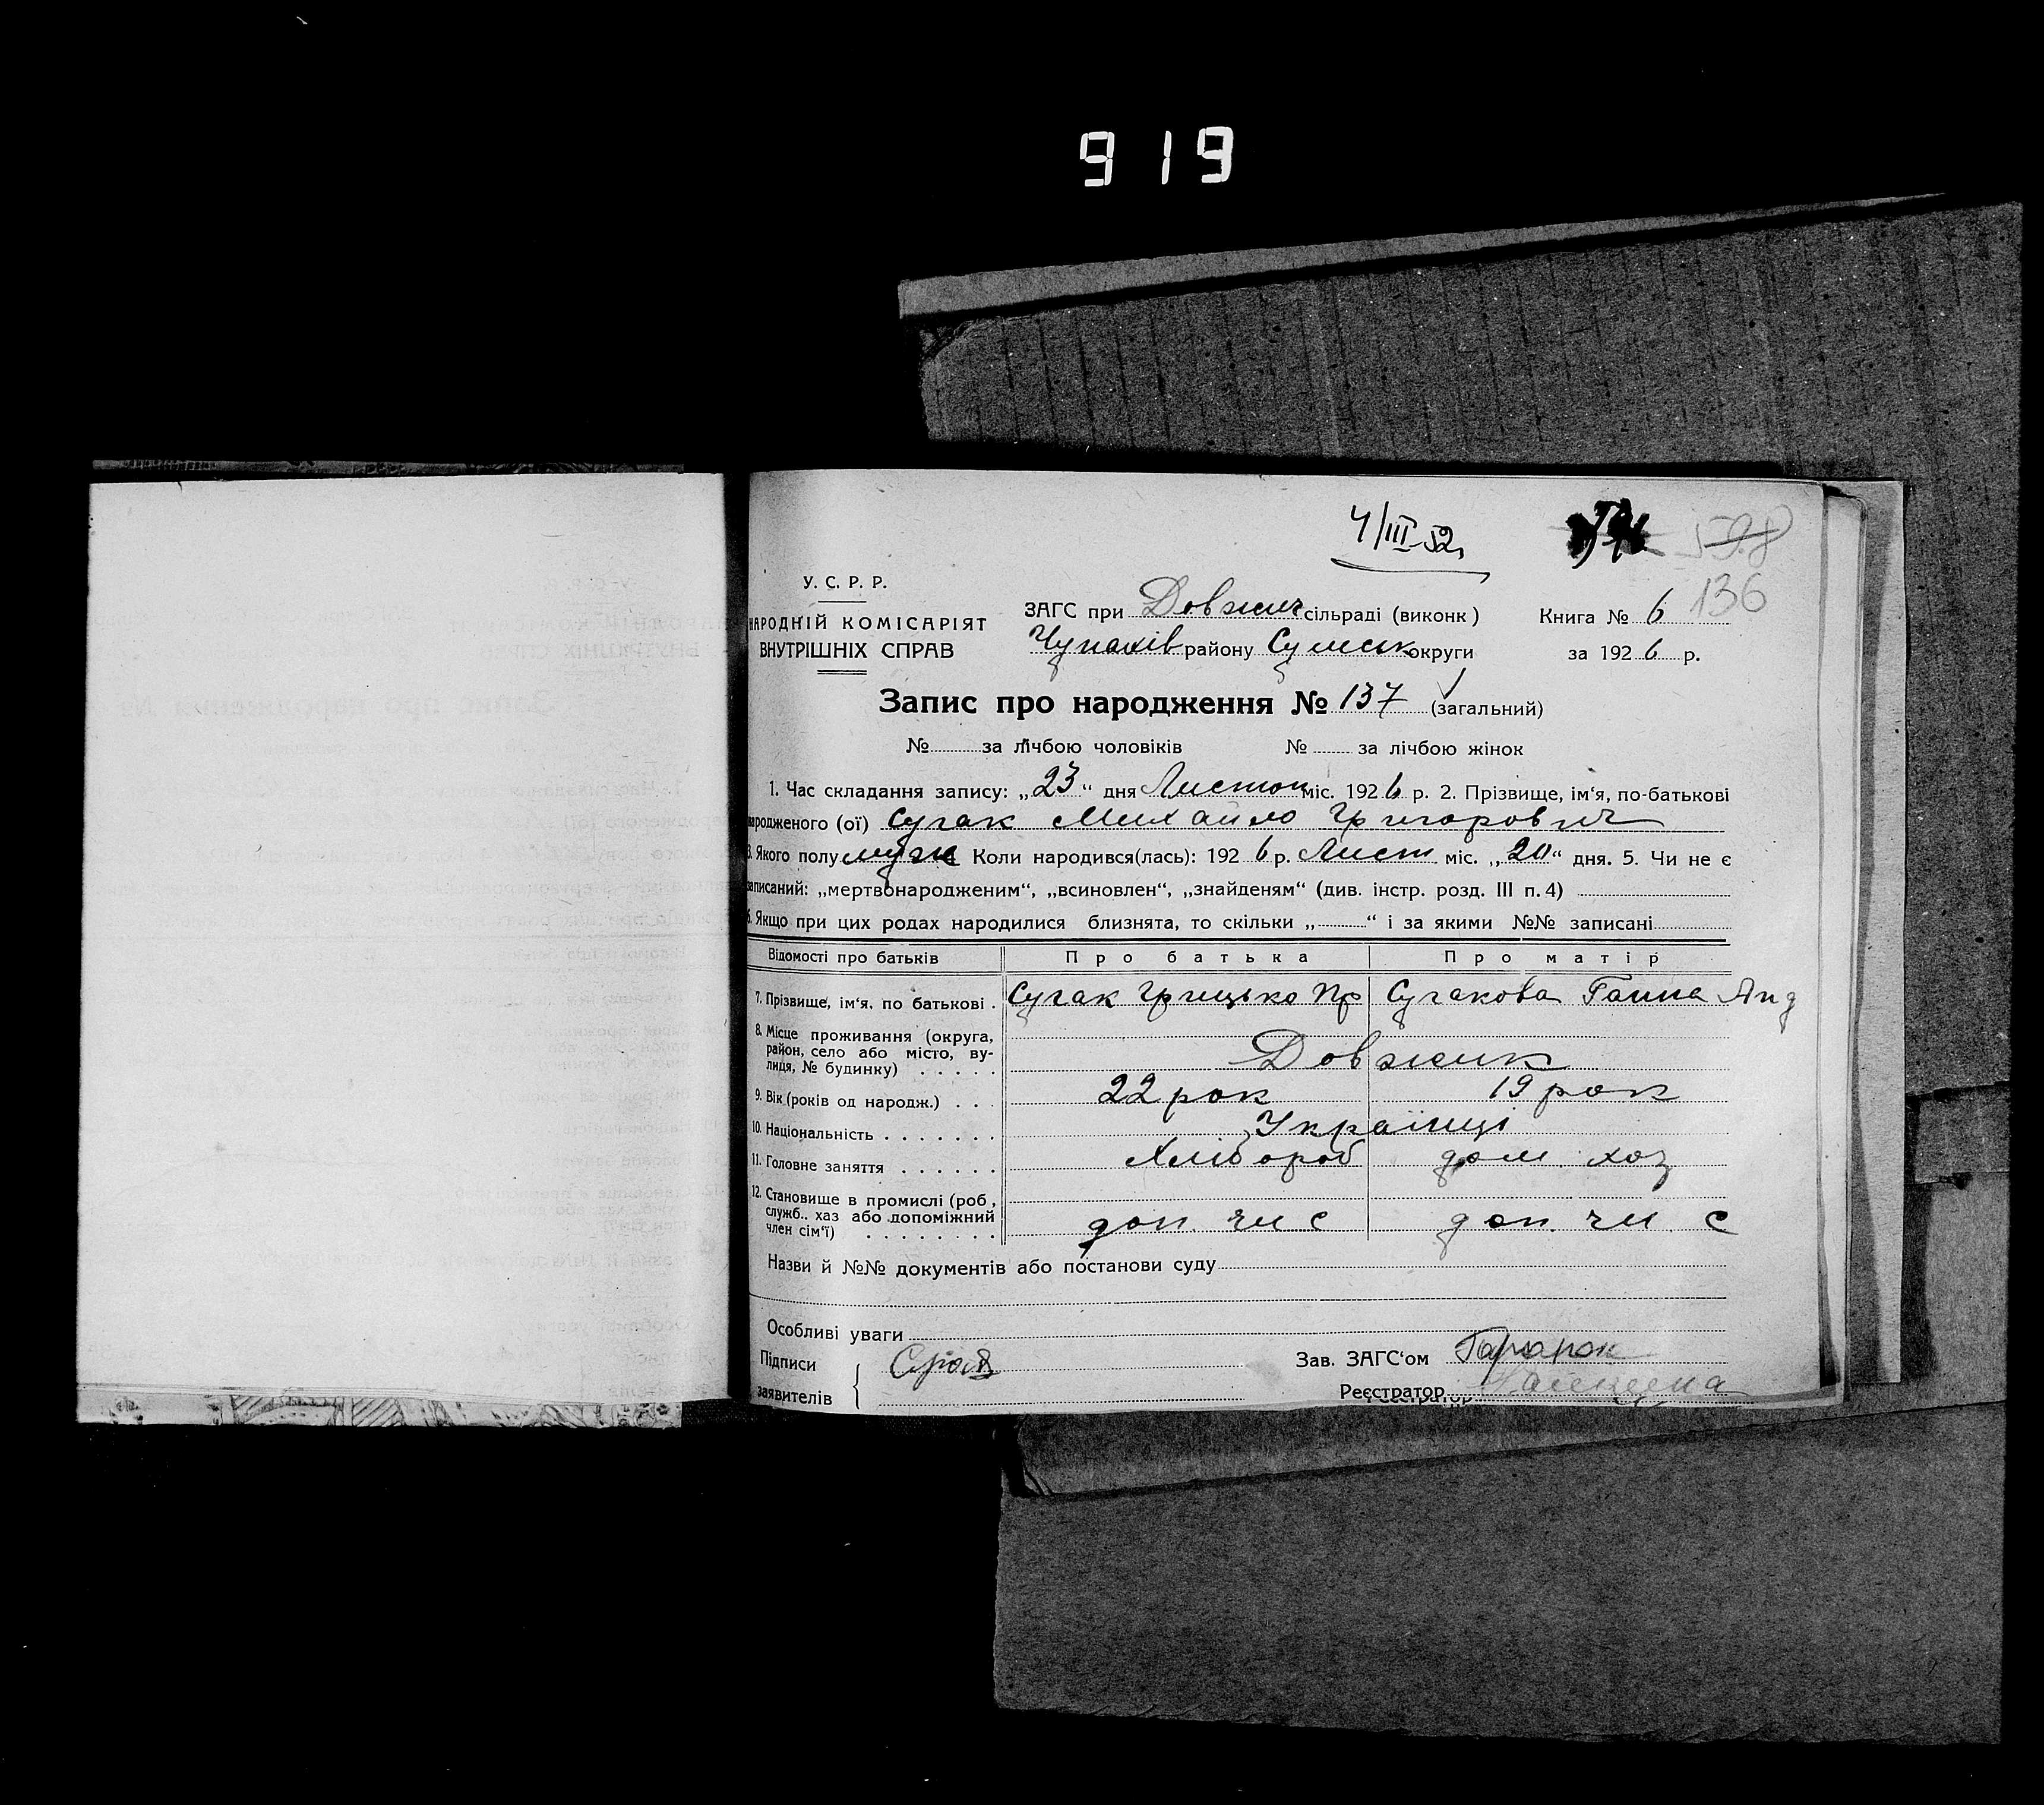 919
4/III-52
598
136
У. С. Р. Р.
НАРОДНІЙ КОМІСАРІЯТ
ВНУТРІШНІХ СПРАВ
ЗАГС при Довжич сільраді (виконк)
Книга № 6
Чупахів району Сумськ округи
за 1926 р.
Запис про народження № 137 (загальний)
№ за лічбою чоловіків № за лічбою жінок
1. Час складання запису: „23“ дня Листоп міс. 1926 р. 2. Прізвище, ім‘я, по-батькові
народженого (ої) Сугак Михайло Григорович
3. Якого полу муж Коли народився(лась): 1926 р. Лист міс. „20“ дня. 5. Чи не є
записаний: „мертвонародженим“, „всиновлен“, „знайденям“ (див. інстр. розд. III п. 4)
6. Якщо при цих родах народилися близнята, то скільки „ “ і за якими №№ записані
Відомості про батьків Про батька Про матір
7. Прізвище, ім‘я, по батькові . Сугак Грицько Пр Сугакова Ганна Анд
8. Місце проживання (округа,
район, село або місто, ву-
лиця, № будинку) . . . . . Довжик
9. Вік (років од народж.) . . . 22 рок 19 рок
10. Національність . . . . . . . Українці
11. Головне заняття . . . . . . Хлібороб дом хоз
12. Становище в промислі (роб,
служб.. хаз або допоміжний
член сім‘ї) . . . . . . . . доп. чл с доп. чл с
Назви й №№ документів або постанови суду
Особливі уваги
Підписи
заявителів
Зав. ЗАГС‘ом
Реєстратор